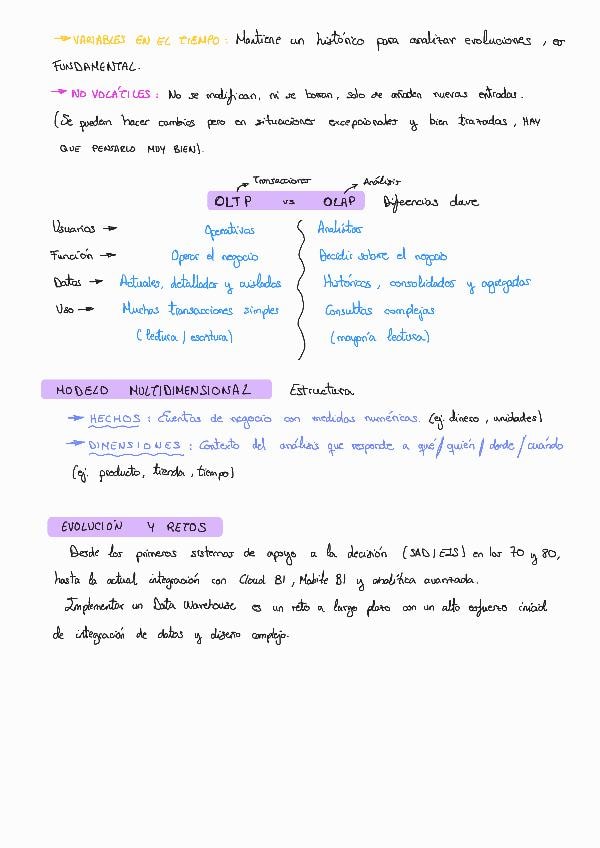 → VARIABLES EN EL TIEMPO: Mantiene un histórico para analizar evoluciones, es
FUNDAMENTAL.
→ NO VOLÁTILES: No se modifican, ni se borran, solo se añaden nuevas entradas.
(Se pueden hacer cambios pero en situaciones excepcionales y bien trazadas, HAY
QUE PENSARLO MUY BIEN).
Transacciones Análisis
OLTP vs OLAP Diferencias clave
Usuarios → Operativos Analistas
Función → Operar el negocio Decidir sobre el negocio
Datos → Actuales, detallados y aislados Históricos, consolidados y agregados
Uso → Muchas transacciones simples Consultas complejas
(lectura/escritura) (mayoría lectura)
MODELO MULTIDIMENSIONAL Estructura
→ HECHOS: Eventos de negocio con medidas numéricas. (ej. dinero, unidades)
→ DIMENSIONES: Contexto del análisis que responde a qué/quién/donde/cuándo
(ej. producto, tienda, tiempo)
EVOLUCIÓN Y RETOS
Desde los primeros sistemas de apoyo a la decisión (SAD/EIS) en los 70 y 80,
hasta la actual integración con Cloud BI, Mobile BI y analítica avanzada.
Implementar un Data Warehouse es un reto a largo plazo con un alto esfuerzo inicial
de integración de datos y diseño complejo.